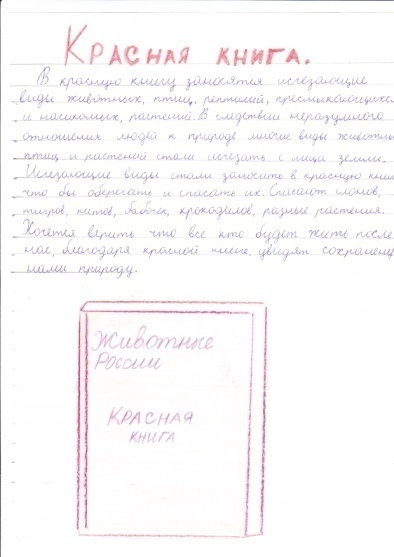 Красная книга.
В красную книгу заносятся исчезающие
виды животных, птиц, рептилий, пресмыкающихся
и насикомых, растений. В следствии неразумного
отношения людей к природе многие виды животных
птиц и растений стали исчезать с лица земли.
Исчезающие виды стали заносить в красную книгу
что бы оберегать и спасать их. Спасают слонов,
тигров, китов, бабочек, крокодилов, разные растения.
Хочется верить что все кто будет жить после
нас, благодаря красной книге, увидят сохранённую
нами природу.
Животные
России
Красная
книга